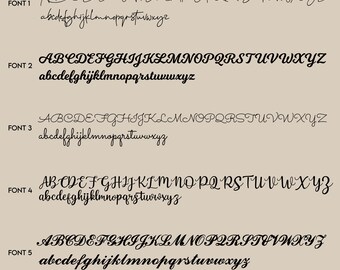 FONT 1
abcdefghijklmnopqrstuvwxyz
FONT 2
ABCDEFGHIJKLMNOPQRSTUVWXYZ
abcdefghijklmnopqrstuvwxyz
FONT 3
ABCDEFGHIJKLMNOPQRSTUVWXYZ
abcdefghijklmnopqrstuvwxyz
FONT 4
ABCDEFGHIJKLMNOPQRSTUVWXYZ
abcdefghijklmnopqrstuvwxyz
FONT 5
ABCDEFGHIJKLMNOPQRSTUVWXYZ
abcdefghijklmnopqrstuvwxyz